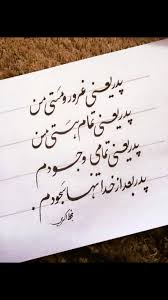 پدر یعنی غرور و مستی من
پدر یعنی تمام هستی من
پدر یعنی تمامی وجودم
پدر بعد از خدا تنها سجودم